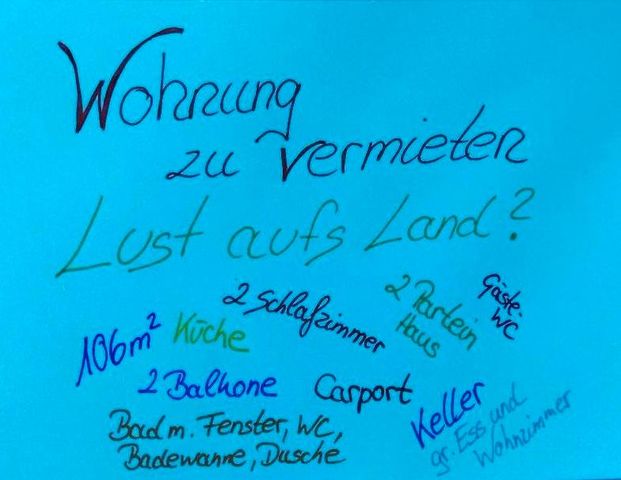 Wohnung
zu vermieten
Lust aufs Land?
106m² Küche
2 Schlafzimmer
2 Partein
Haus
Gäste-
WC
2 Balkone
Carport
Keller
Bad m. Fenster, WC,
Badewanne, Dusche
gr. Ess und
Wohnzimmer